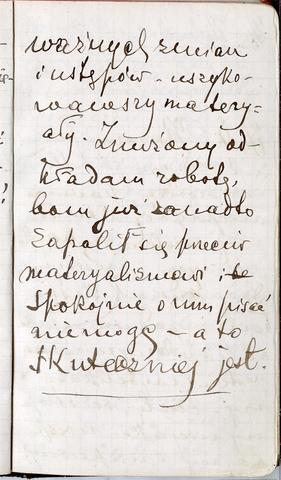 ważnych zmian
i ustępów - uszyko-
wawszy matery-
ały. Znużony od-
kładam robotę,
bom już zanadto
zapalił się przeciw
materyalizmowi i
spokojnie o nim pisać
niemogę - a to
skuteczniej jest.